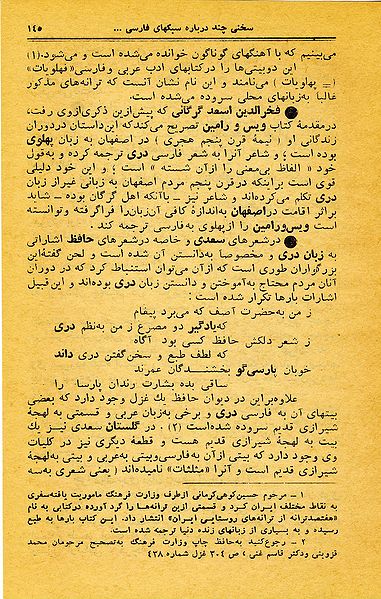 سخنی چند درباره سبکهای فارسی ... ۱۴۵
می‌بینیم که با آهنگهای گوناگون خوانده می‌شده است و می‌شود.(۱)
این دوبیتی‌ها را در کتابهای ادب عربی و فارسی «فهلویات»
(= پهلویات) می‌نامند و این نام نشان آنست که ترانه‌های مذکور
غالباً به‌زبانهای محلی سروده می‌شده است.
● فخرالدین اسعد گرگانی که پیش‌ازین ذکری‌ازوی رفت،
درمقدمهٔ کتاب ویس و رامین تصریح می‌کندکه این‌داستان دردوران
زندگانی او (نیمهٔ قرن پنجم هجری) در اصفهان به زبان پهلوی
بوده است؛ و شاعر آنرا به شعر فارسی دری ترجمه کرده و به‌قول
خود «الفاظ بی‌معنی را ازآن شسته» است؛ و این خود دلیلی
قوی است براینکه درقرن پنجم مردم اصفهان به زبانی غیراز زبان
دری تکلم می‌کرده‌اند و شاعر نیز ـ باآنکه اهل گرگان بوده ـ شاید
براثر اقامت دراصفهان به‌اندازهٔ کافی آن‌زبان‌را فراگرفته و توانسته
است ویس‌ورامین را ازپهلوی به‌فارسی ترجمه کند.
● درشعرهای سعدی و خاصه درشعرهای حافظ اشاراتی
به زبان دری و مخصوصاً به‌دانستن آن شده است و لحن گفتهٔ‌این
بزرگزاران طوری است که ازآن می‌توان استنباط کرد که در دوران
آنان مردم محتاج به‌آموختن و دانستن زبان دری بوده‌اند و این‌قبیل
اشارات بارها تکرار شده است:
ز من به‌حضرت آصف که می‌برد پیغام
که‌یادگیر دو مصرع ز من به‌نظم دری
ز شعر دلکش حافظ کسی بود آگاه
که لطف طبع و سخن‌گفتن دری داند
خوبان پارسی‌گو بخشندگان عمرند
ساقی بده بشارت رندان پارسا را
علاوه‌براین در دیوان حافظ یك غزل وجود دارد که بعضی
بیتهای آن به فارسی دری و برخی به‌زبان عربی و قسمتی به لهجهٔ
شیرازی قدیم سروده شده‌است (۲). در گلستان سعدی نیز یك
بیت به لهجهٔ شیرازی قدیم هست و قطعهٔ دیگری نیز در کلیات
وی وجود دارد که بیتی ازآن به‌فارسی‌وبیتی به‌عربی و بیتی به‌لهجهٔ
شیرازی قدیم است و آنرا «مثلثات» نامیده‌اند (یعنی شعری به‌سه
۱ ـ مرحوم حسین‌کوهی‌کرمانی ازطرف وزارت فرهنگ مأموریت یافته‌سفری
به نقاط مختلف ایران کرد و قسمتی ازین ترانه‌ها را گرد آورده درکتابی به نام
«هفتصدترانه از ترانه‌های روستایی ایران» انتشار داد. این کتاب بارها به طبع
رسیده و به بسیاری از زبانهای زنده دنیا ترجمه شده است.
۲ ـ رجوع‌کنید به‌حافظ چاپ وزارت فرهنگ به‌تصحیح مرحومان محمد
قزوینی ودکتر قاسم غنی، ص ۳۰۴ غزل شماره ۴۳۸